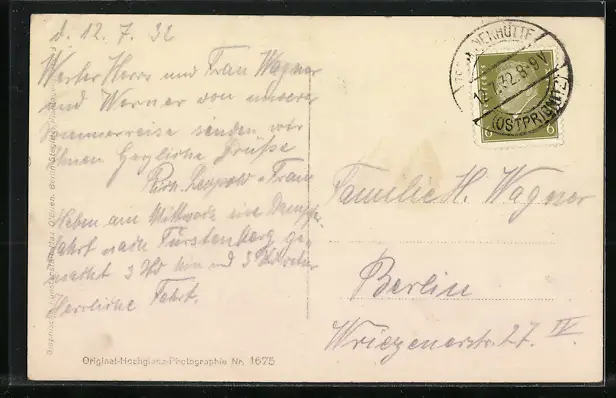 d. 12.7.32
Werter Herr und Frau Wagner
und Werner von unserer
Sommerreise senden wir
Ihnen Herzliche Grüße
u Frau
Haben am Mittwoch eine Dampf
fahrt nach Fürstenberg ge
macht 3 Std hin und 3 Std
Herrliche Fahrt.
Original-Hochglanz-Photographie Nr. 1675
NEKHÜTTE
7.32.8-9V
(OSTPRIGNITZ)
6 6
Familie H. Wagner
Berlin
Wriezenerstr. 27. IV.